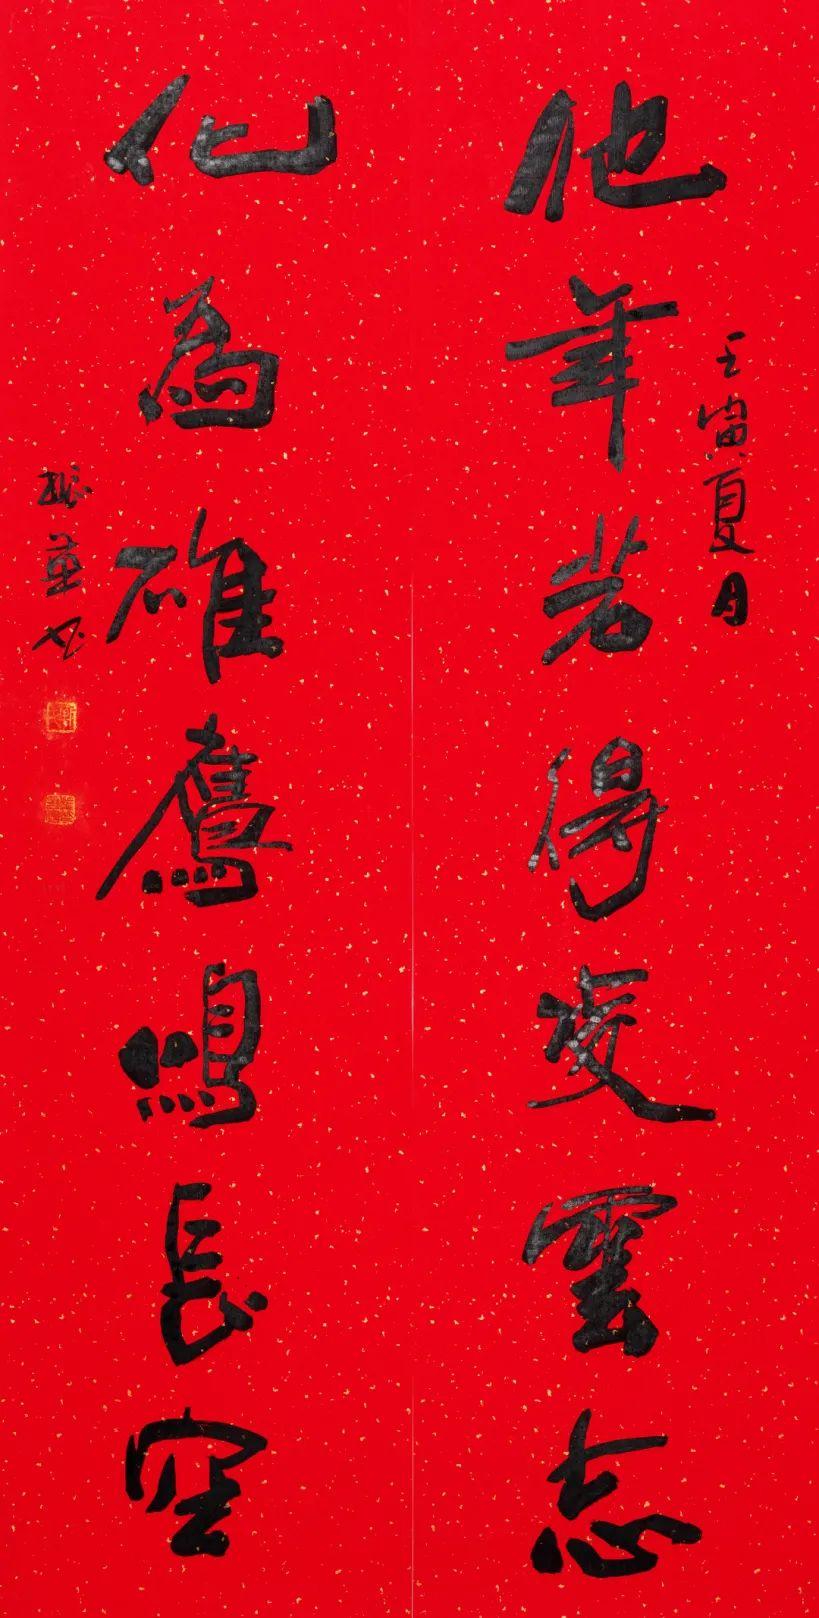 他年若得凌雲志
壬寅夏月
化為雄鷹鳴長空
振華书